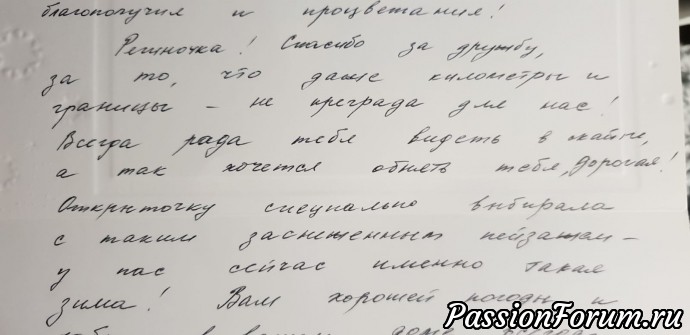 благополучия и процветания!
Региночка! Спасибо за дружбу,
за то, что даже километры и
границы - не преграда для нас!
Всегда рада тебя видеть в скайпе,
а так хочется обнять тебя, дорогая!
Открыточку специально выбирала
с таким заснеженным пейзажем -
у нас сейчас именно такая
зима! Вам хорошей погоды и
в вашем доме
PassionForum.ru